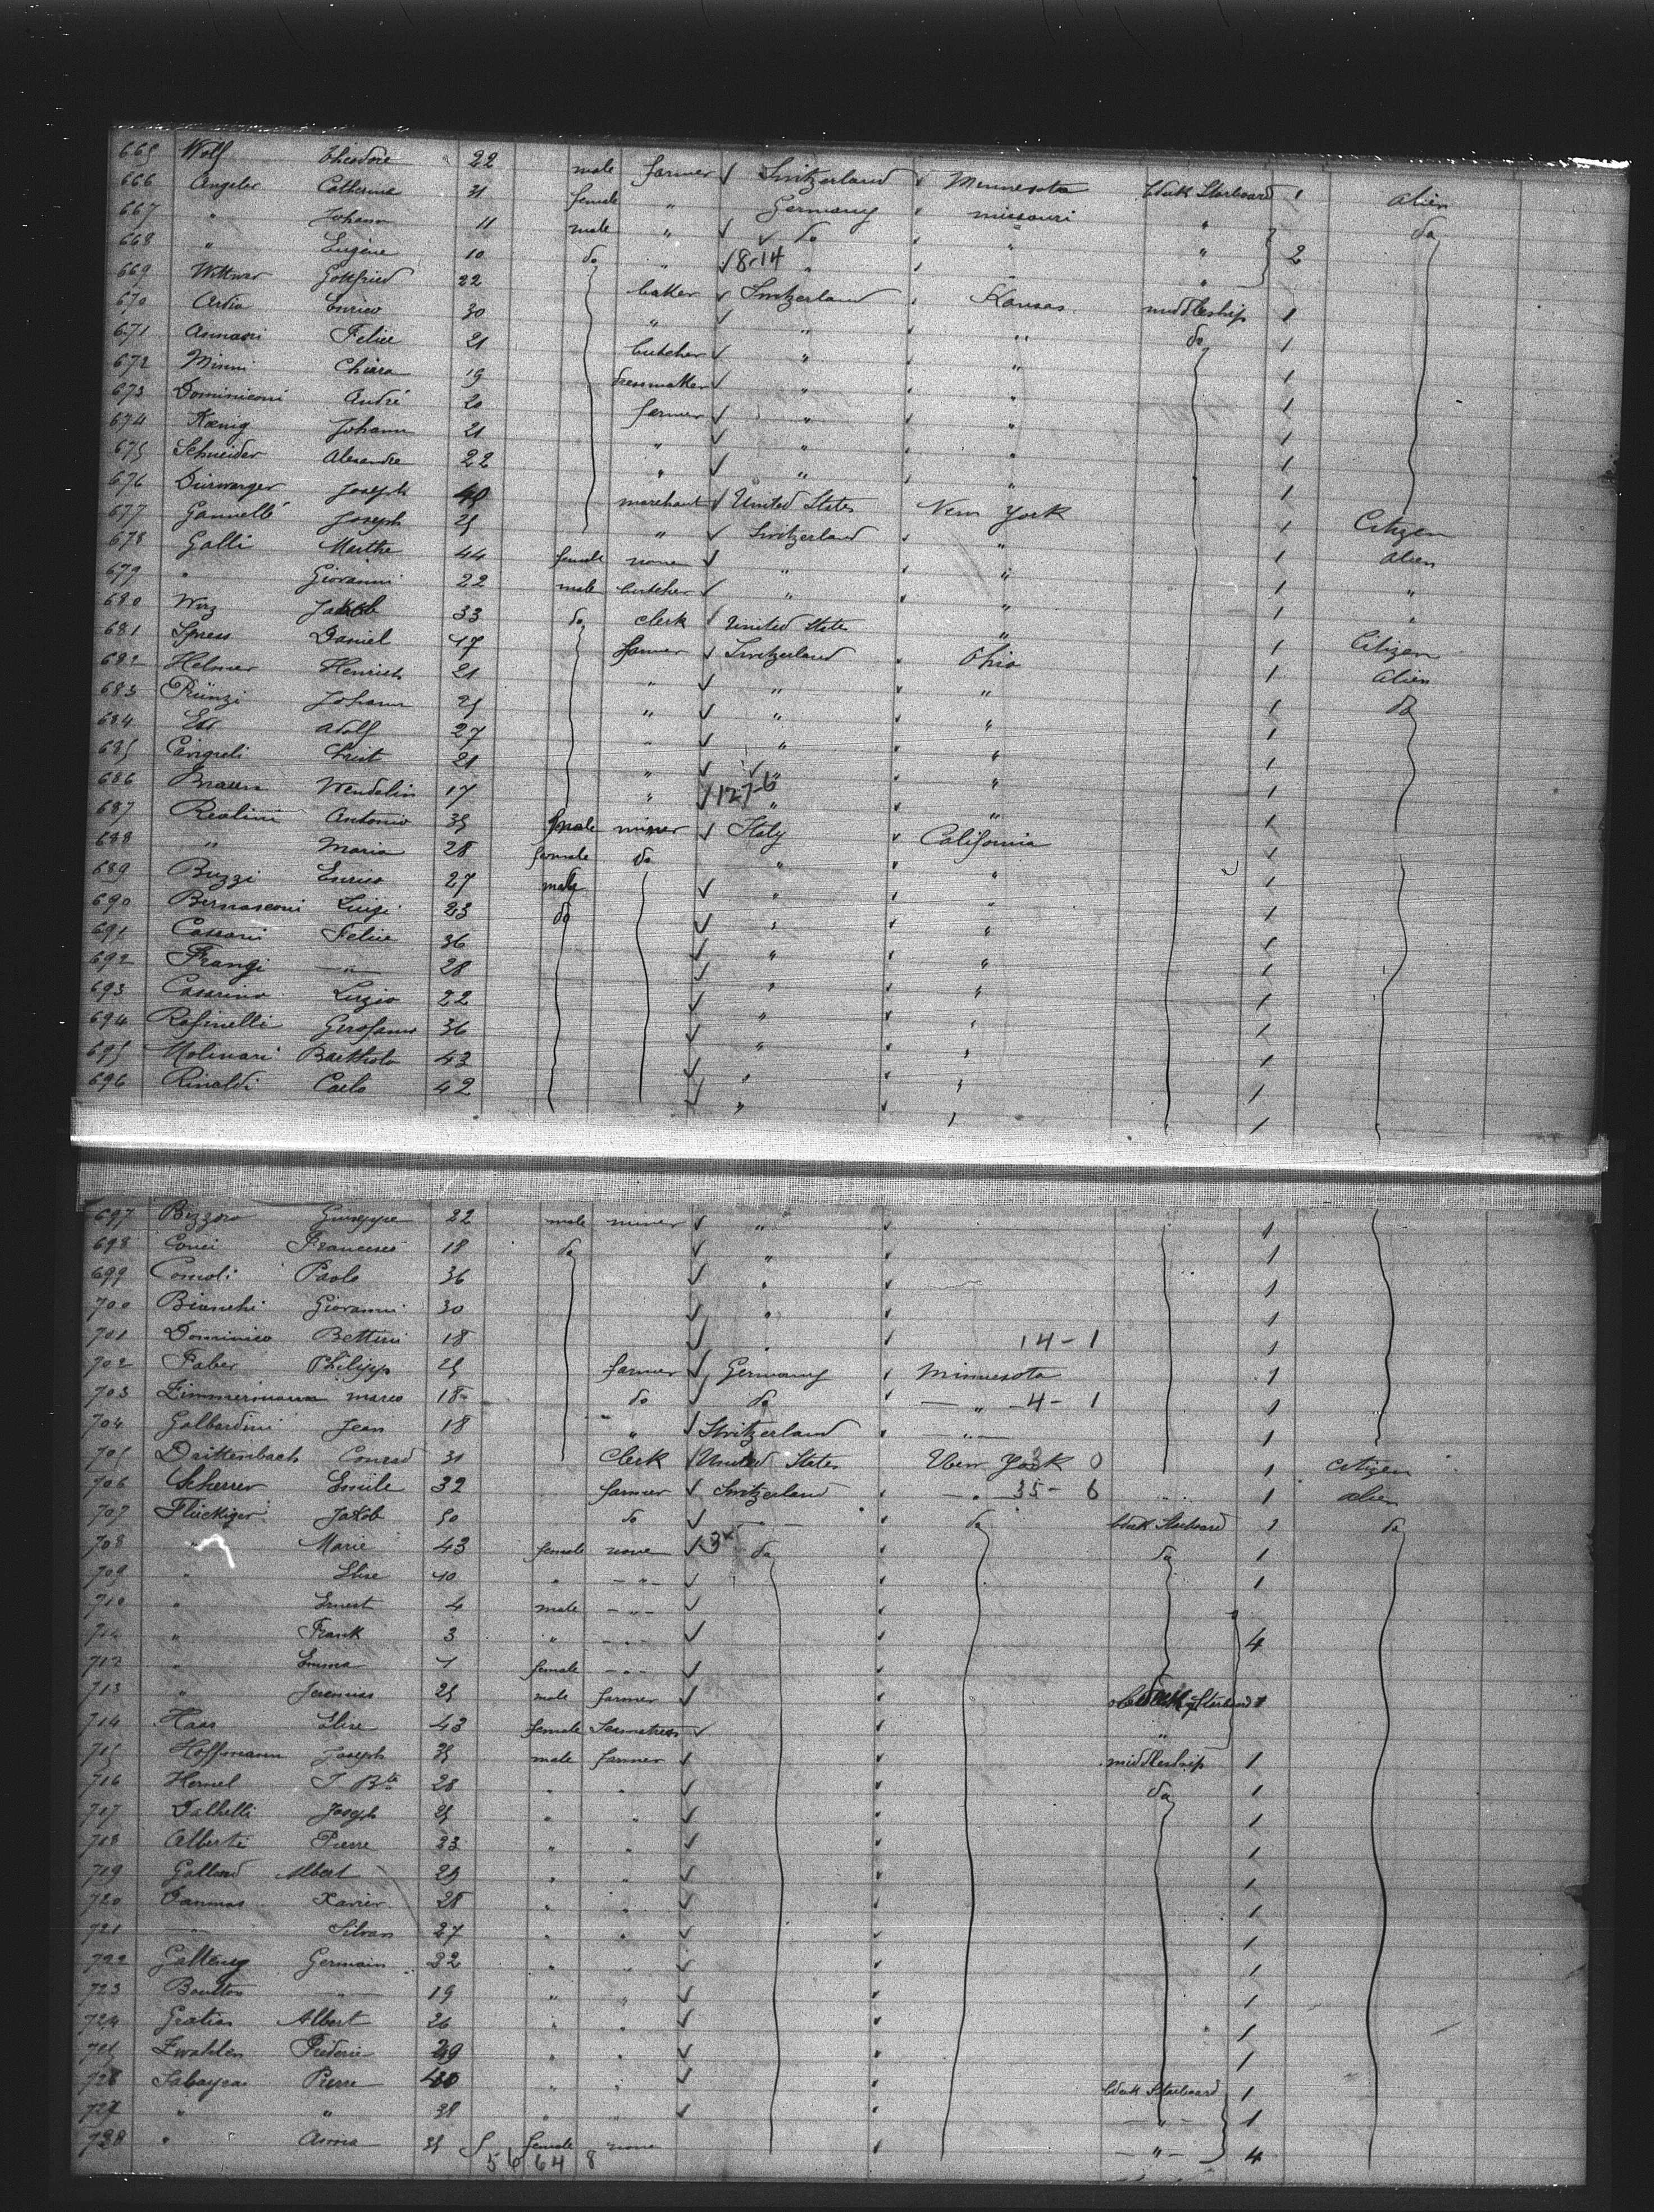 665 Wolf Theodore 22 male farmer Switzerland Minnesota bdeck Starboard 1 alien
666 Angeler Catherina 31 female " Germany missouri " do
667 " Johann 11 male " do " " 2
668 " Eugène 10 do " 8-14 " " "
669 Wittwer Gottfried 22 baker Switzerland Kansas middleship 1
670 Ardia Enrico 30 " " " do 1
671 Felice 21 butcher " " 1
672 Minni Chiara 19 dressmaker " " 1
673 Dominiconi André 20 farmer " " 1
674 Kœnig Johann 21 " " " 1
675 Schneider Alexandre 22 " " " 1
676 Joseph merchant United States New York 1 Citizen
677 Joseph 25 " Switzerland " 1 alien
678 Galli Marthe 44 female none " " 1 "
679 " Giovanni 22 male butcher " " 1 "
680 Wirz Jakob 33 do clerk United State " 1 Citizen
681 Spiess Daniel 47 farmer Switzerland Ohio 1 alien
682 Helmer Heinrich 21 " " " 1 do
683 Rünzi Johann 25 " " " 1
684 Adolf 27 " " " 1
685 Christ 21 " " " 1
686 Braun Wendelin 17 " 127-6 " " 1
687 Realini Antonio 35 male miner Italy California 1
688 " Maria 28 female do " " 1
689 Buzzi Enrico 27 male " " 1
690 Bernasconi Luigi 23 do " " 1
691 Cassani Felice 36 " " 1
692 Frangi " 28 " " 1
693 Casarino Luigio 22 " " 1
694 Rafinelli 36 " " 1
695 Molinari Barthola 43 " " 1
696 Rinaldi Carlo 42 " " 1
697 Bizzoro Giuseppe 22 male miner " 1
698 Conci Francesco 18 do " 1
699 Comoli Paolo 36 " 1
700 Bianchi Giovanni 30 " 1
701 Dominico Bettini 18 14-1 1
702 Faber Philipp 25 farmer Germany Minnesota 1
703 Zimmermann marco 18 do do " 4-1 1
704 Galbardini Jean 18 " Switzerland " 1
705 Drittenbach Conrad 31 Clerk United States New York 3 0 1 citizen
706 Scherrer Emile 32 farmer Switzerland " 35-6 1 alien
707 Flückiger Jakob 50 do do bdeck Starboard 1 do
708 " Marie 43 female none 3 do do 1
709 " Elise 10 " " 1
710 " Ernest 4 male "
711 " Frank 3 " " 4
712 " Emma 1 female "
713 " Jeremias 25 male farmer
714 Haas Elise 43 female Seamstress "
715 Hoffmann Joseph 35 male farmer middleship 1
716 Hemel J. Bte 28 " " do 1
717 Dalhelli Joseph 25 " " 1
718 Alberti Pierre 23 " " 1
719 Galland Albert 25 " " 1
720 Xavier 28 " " 1
721 " Silvan 27 " " 1
722 Germain 32 " " 1
723 Boulton " 19 " " 1
724 Gratias Albert 26 " " 1
725 Zwahlen 29 " " 1
726 Pierre 40 " " bdeck Starboard 1
727 " " 38 " " " 1
728 " Anna 35 female none " 4
5 6 64 8